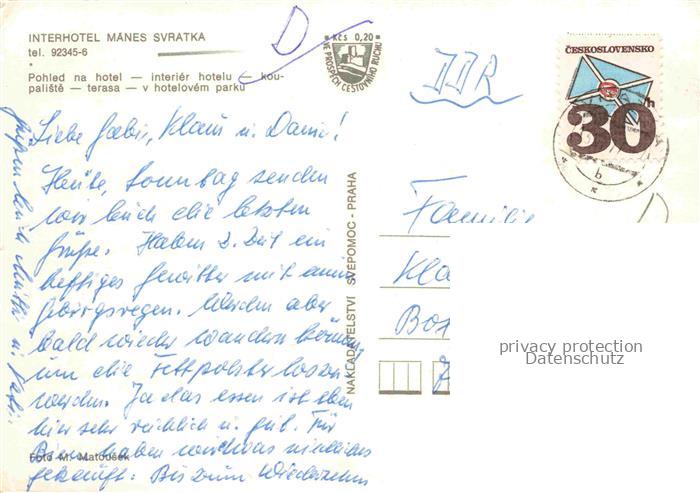 INTERHOTEL MÁNES SVRATKA
tel. 92345-6
Pohled na hotel — interiér hotelu — kou-
paliště — terasa — v hotelovém parku
D
Kčs 0,20
VE PROSPĚCH CESTOVNÍHO RUCHU
DDR
ČESKOSLOVENSKO
30h
b
Liebe Gabi, Klaus u. Danie!
Heute, Sonntag senden
wir Euch die letzten
Grüße. Haben z. Zeit ein
heftiges Gewitter mit
Gebirgsregen. Werden aber
bald wieder wandern können,
um die Fettpolster los zu
werden. Ja das essen ist eben
hier sehr reichlich u. gut. Für
haben wir etwas
gekauft. Bis zum Wiedersehn
Grüßen Euch Mutti u. Vati
Foto M. Matoušek
NAKLADATELSTVÍ SVÉPOMOC - PRAHA
Familie
Kla
Box
privacy protection
Datenschutz